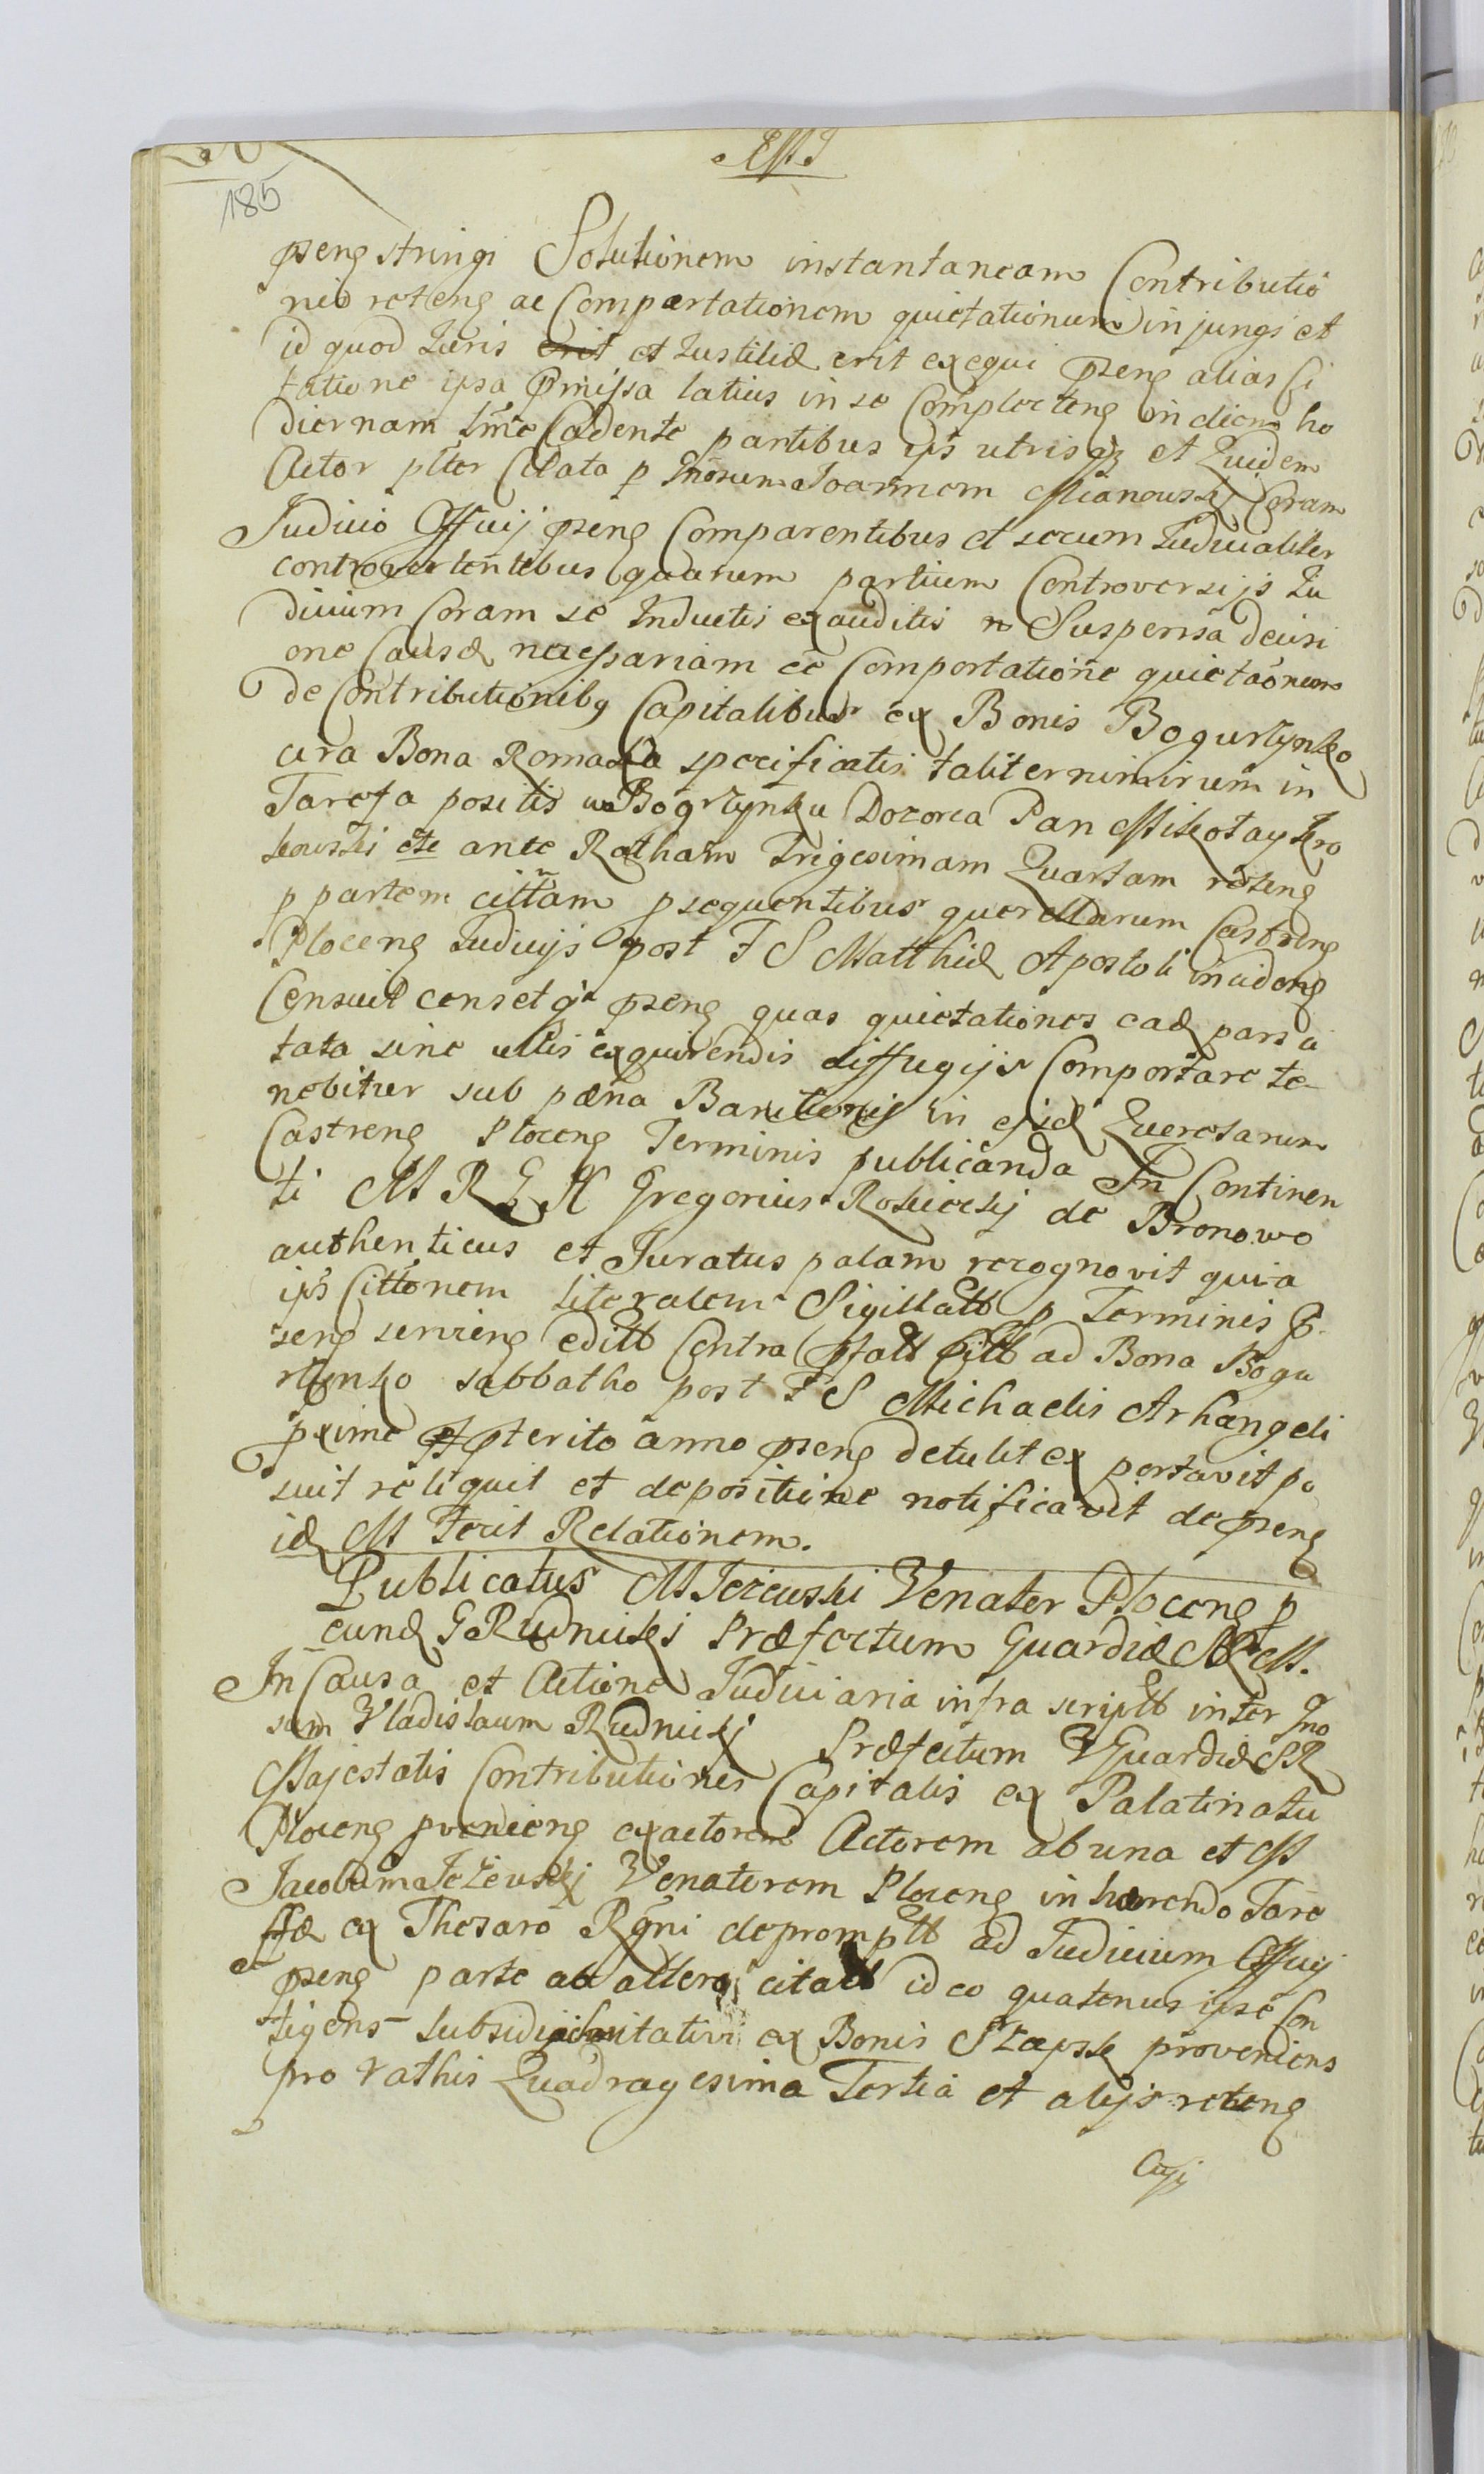 185
pseng stringi Solutionem instantaneam Contributio
nis reteng ac Compartationem quietationum injungi et
id quod Iuris erit et Iustitiæ erit exequi pseng alias Ci
tatione ipsa pmissa latius in se Complecteng in diem ho
diernam tme Cadente partibus ips utrisqz et Quidem
Actor plter Citata p Gnosum Joannem Mianowskj Coram
Judicio Officij pseng Comparentibus et secum Iudicialiter
controvertentibus quarum partium Controversijs Iu
dicium Coram se Inductis exauditis n Suspensa decisi
one Causæ necessariam ee Comportatione quietaonum
de Contributionibg Capitalibus ex Bonis Bogurzynko
cira Bona Romatka specificatis taliter nimirum in
Tarefa positis w Bogrzynku Dozorca Pan Mikołay Kro
kowski etc ante Ratham Trigesimam Quartam reteng
p partem cittam psequentibus querellarum Castreng
Ploceng Iudicijs post F S Matthiæ Apostoli incideng
Censuit censetq pseng quas quietationes eadę pars ci
tata sine ullis exquirendis diffugijs Comportare te
nebitur sub pæna Banitionis in ejsdę Querelarum
Castreng Ploceng Terminis publicanda In Continen
ti M R G H Gregorius Rosciecky de Bronowo
authenticus et Iuratus palam recognovit quia
ips Cittonem literalem Sigillatt p Terminis p
seng servieng editt Contra pfatt Citt ad Bona Bogu
rzynko sabbatho post F S Michaelis Arhangeli
pxime pterito anno pseng detulit ex portavit po
suit reliquit et depositione notificavit de pseng
idę M Fecit Relationem.
Publicatus M Jezewski Venator Ploceng p
eundę G Rudnicki Præfectum Guardiæ S R M.
In Causa et Actione Judiciaria infra scriptt inter Gno
sum Vladislaum Rudnickj Præfectum Guardiæ S R
Majestatis Contributiones Capitalis ex Palatinatu
Ploceng pvenieng exactorem Actorem ab una et M
Jacobum Jezewskj Venatorem Ploceng in hærendo Tare
ffæ ex Thesaro Regni depromptt ad Iudicium Officij
pseng parte ab altera citatt id eo quatenus ipse Con
tigens subsidij charitativi ex Bonis Słupsk proveniens
pro rathis Quadragesima Tertia et alijs reteng
Cujj